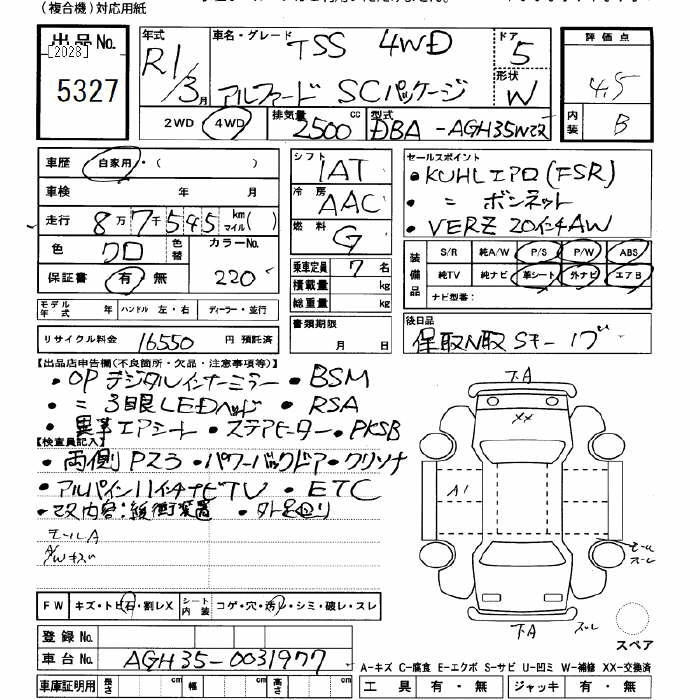 (複合機)対応用紙
出品No. [2028] 5327
年式 R1/3月
車名・グレード TSS 4WD
アルファード SCパッケージ
ドア 5
形状 W
評価点 4.5
内装 B
2WD 4WD
排気量 2500 cc
型式 DBA-AGH35W改
車歴 自家用・( )
車検 年 月
走行 8万7千545 km マイル( )
色 クロ 色替 カラーNo. 220
保証書 有・無
モデル年式 年 ハンドル 左・右 ディーラー・並行
リサイクル料金 16550 円 預託済
シフト IAT
冷房 AAC
燃料 G
乗車定員 7 名
積載量 kg
総重量 kg
書類期限 月 日
セールスポイント
・KUHLエアロ(FSR)
・〃 ボンネット
・VERZ 20インチAW
装備品 S/R 純A/W P/S P/W ABS
純TV 純ナビ 革シート 外ナビ エアB
ナビ型番:
後日品
保取N取Sキー
【出品店申告欄(不良箇所・欠品・注意事項等)】
・OPデジタルインナーミラー ・BSM
・〃 3眼LEDヘッド ・RSA
・黒革エアシート ・ステアヒーター ・PKSB
【検査員記入】
・両側Pスラ ・パワーバックドア ・クリソナ
・アルパイン11インチナビTV ・ETC
・改内容:緩衝装置 ・外足回り
モールA
A/Wキズ
FW キズ・トビ石・割レX シート内装 コゲ・穴・汚レ・シミ・破レ・スレ
登録No.
車台No. AGH35-0031977
車庫証明用 長さ cm 幅 cm 高さ cm
下A
XX
A1
モール
スレ
下A
スレ
スペア
A-キズ C-腐食 E-エクボ S-サビ U-凹ミ W-補修 XX-交換済
工具 有・無 ジャッキ 有・無